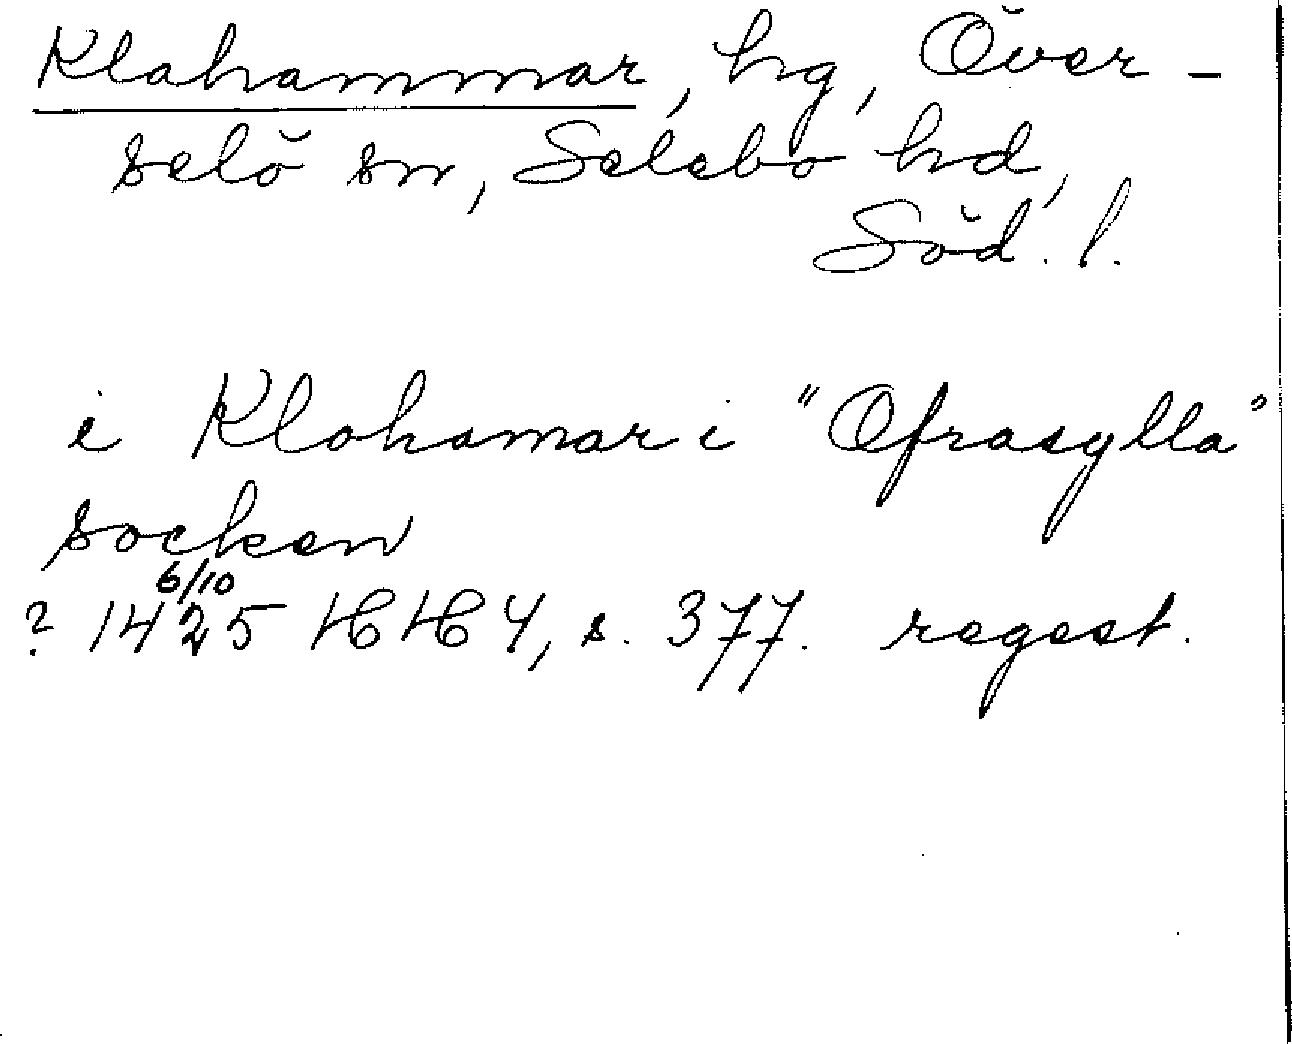 Klahammar, hg, Över-
selö sn, Selebo hd,
Söd. l.
i Klohamar i "Ofrasylla"
socken
6/10
? 1425 HH Y, s. 377. regest.